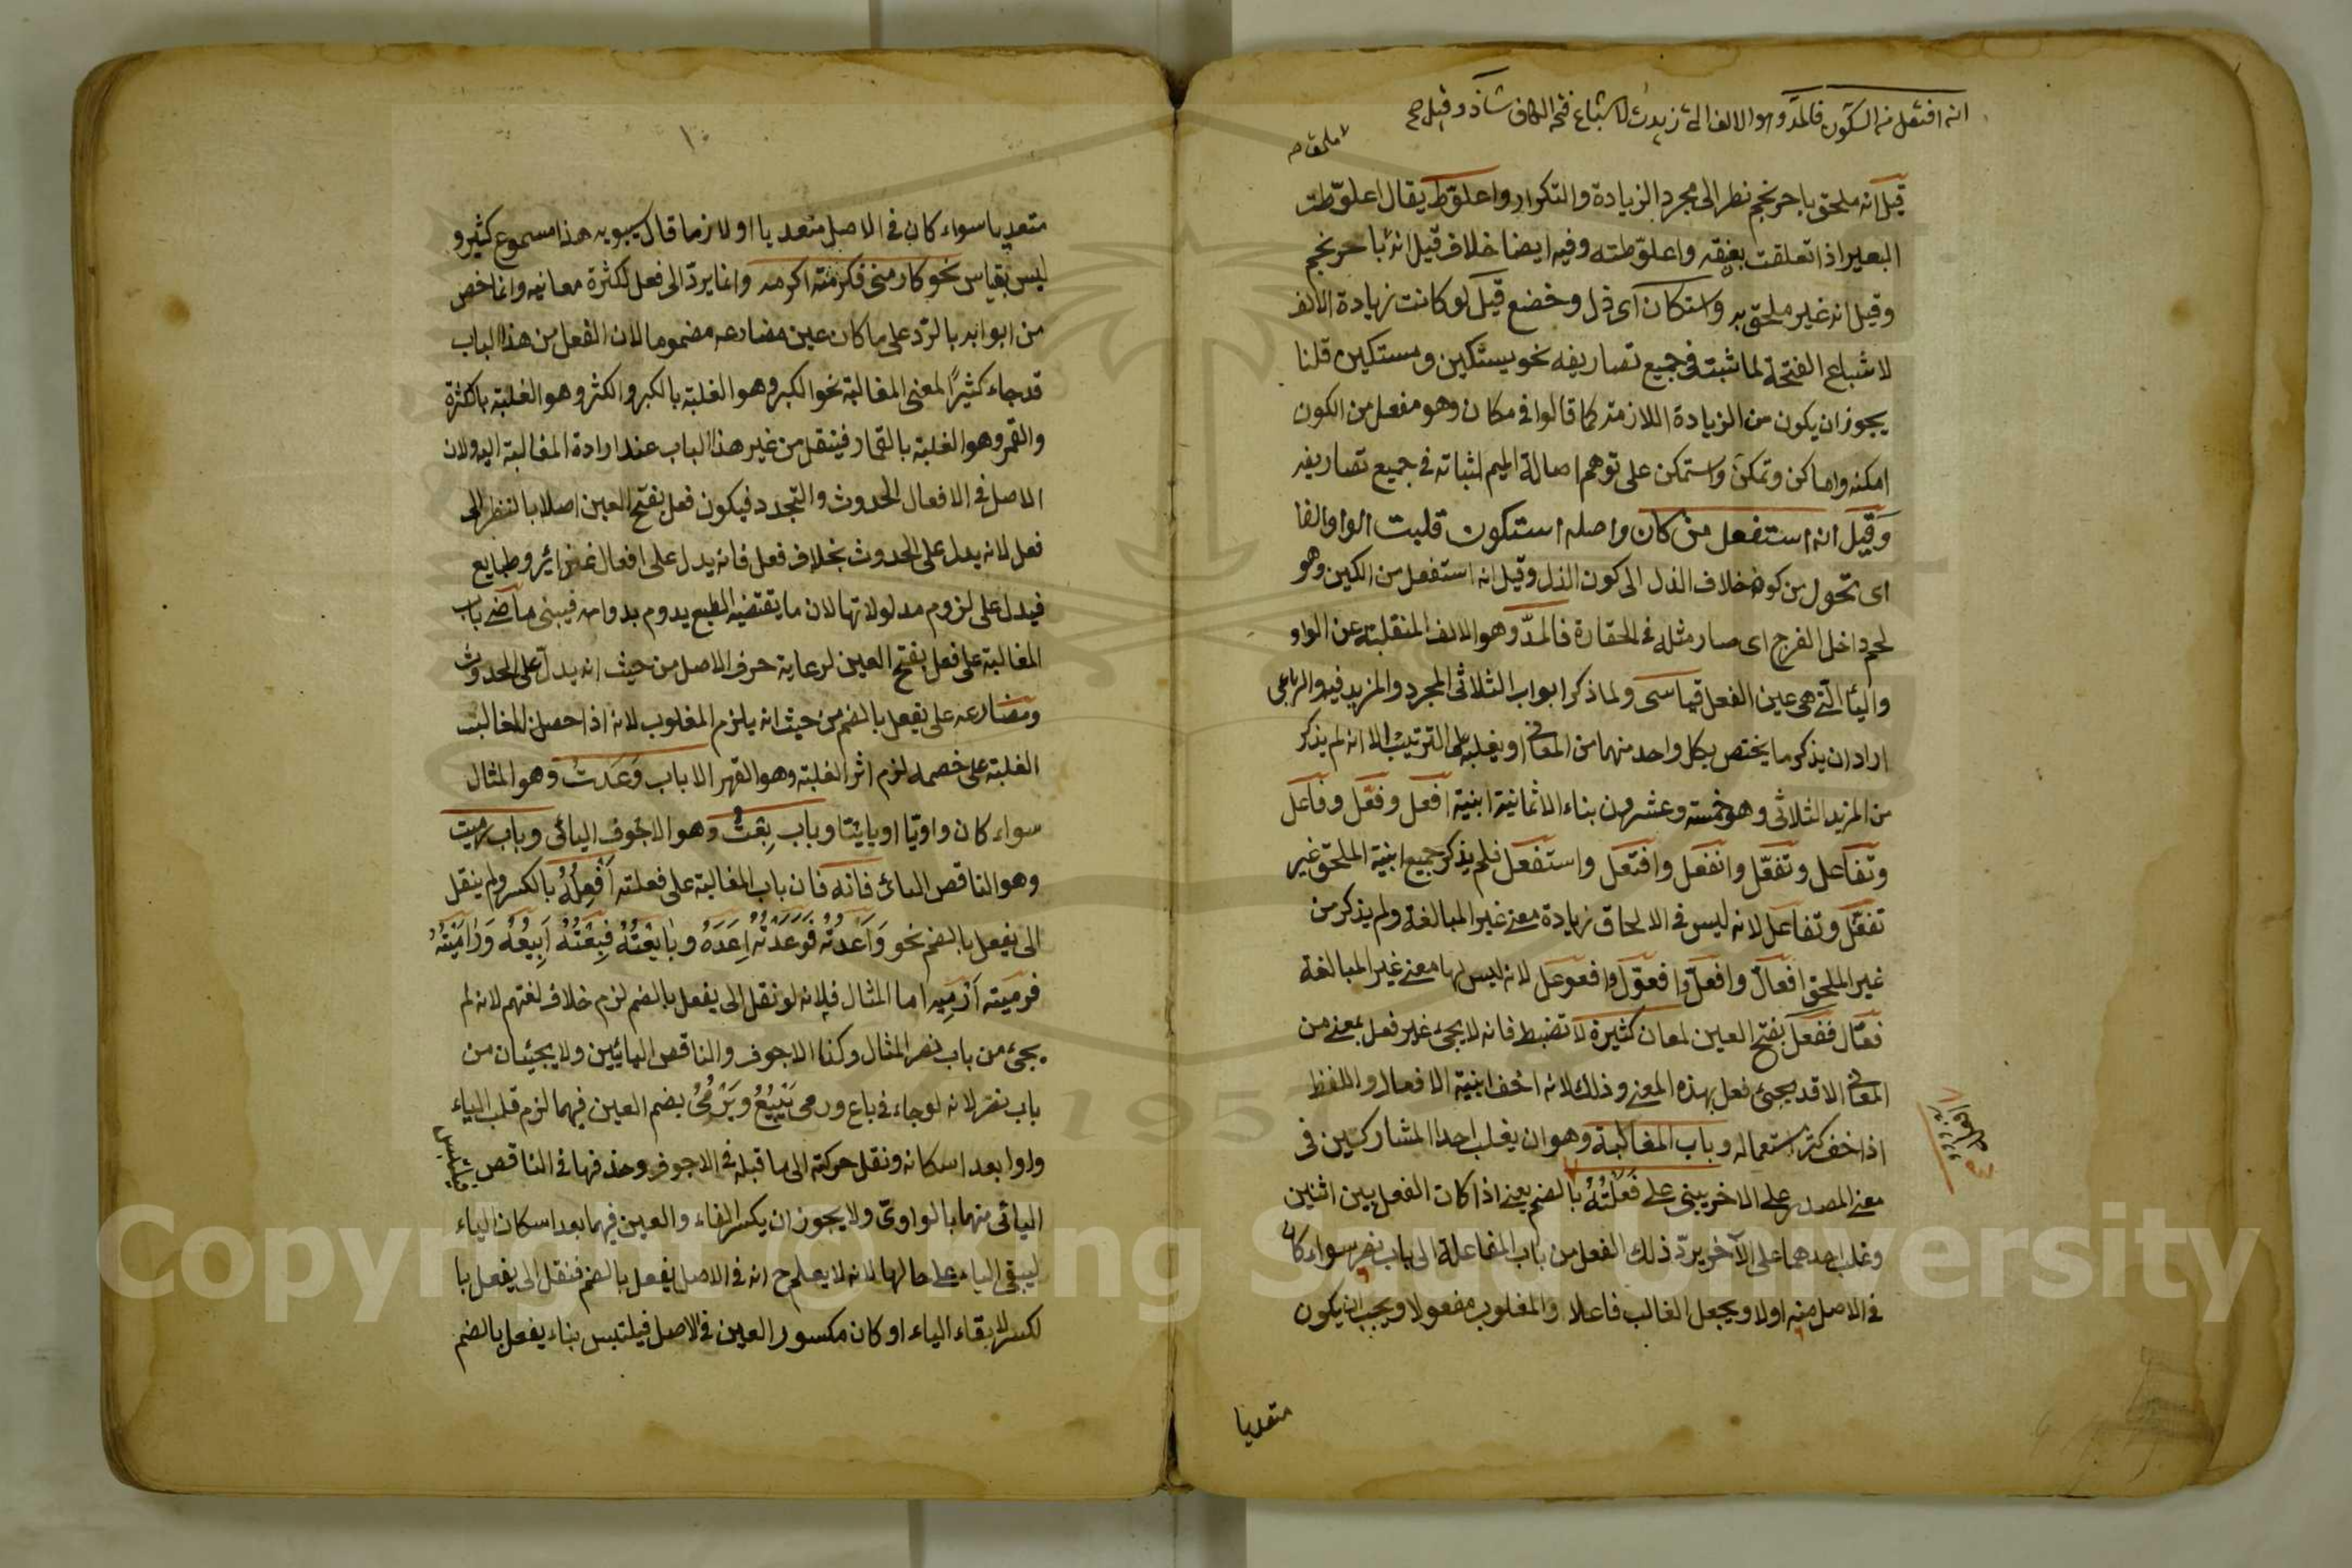 انه افتعل من السكون فالمد وهو الالف التى زيدت لاشباع فتحة الكاف شاذ وقيل صح
ملحق صه
قيل انه ملحق باحرنجم نظرا الى مجرد الزيادة والتكرار واعلوّط يقال اعلوّطت
البعير اذا تعلقت بعنقه واعلوّطته وفيه ايضا خلاف قيل انه باحرنجم
وقيل انه غير ملحق به واستكان اى ذل وخضع قيل لو كانت زيادة الالف
لاشباع الفتحة لما ثبت فى جميع تصاريفه نحو يستكين ومستكين قلنا
يجوز ان يكون من الزيادة اللازمة كما قالوا فى مكان وهو مفعل من الكون
امكنه واماكن وتمكن واستمكن على توهم اصالة الميم لثباته فى جميع تصاريفه
وقيل انه استفعل من كان واصله استكون قلبت الواو الفا
اى تحول من كون خلاف الذل الى كون الذل وقيل انه استفعل من الكين وهو
لحم داخل الفرج اى صار مثله فى الحقارة فالمدّ وهو الالف المنقلبة عن الواو
والياء التى هى عين الفعل قياسى ولما ذكر ابواب الثلاثى المجرد والمزيد فيه والرباعى
اراد ان يذكر ما يختص بكل واحد منهما من المعانى او يغلبه على الترتيب الا انه لم يذكر
من المزيد الثلاثى وهو خمسة وعشرون بناء الا ثمانية ابنية افعل وفعّل وفاعل
وتفاعل وتفعّل وانفعل وافتعل واستفعل فلم يذكر جميع ابنية الملحق غير
تفعّل وتفاعل لانه ليس فى الالحاق زيادة معنى غير المبالغة ولم يذكر من
غير الملحق افعالّ وافعلّ وافعوّل وافعوعل لانه ليس لها معنى غير المبالغة
فقال ففعل بفتح العين لمعان كثيرة لا تضبط فانه لا يجئ غير فعل بمعنى من
المعانى الا قد يجئ فعل بهذه المعنى وذلك لانه اخف ابنية الافعال واللفظ
اذا خف كثر استعماله وباب المغالبة وهو ان يغلب احد المشاركين فى
معنى المصدر على الاخر يبنى على فَعَلْتُهُ بالضم يعنى اذا كان الفعل بين اثنين
وغلب احدهما على الآخر يردّ ذلك الفعل من باب المفاعلة الى باب نصر سواء كان
فى الاصل منه اولا ويجعل الغالب فاعلا والمغلوب مفعولا ويجب ان يكون
متعديا
١٠
متعديا سواء كان فى الاصل متعديا او لازما قال سيبويه هذا مسموع كثير و
ليس بقياس نحو كارمنى فكرمته اكرمه وانما يردّ الى فعل لكثرة معانيه وانما خص
من ابوابه بالرّد على ما كان عين مضارعه مضموما لان الفعل من هذا الباب
قد جاء كثيرًا لمعنى المغالبة نحو الكبر وهو الغلبة بالكبر والكثر وهو الغلبة بالكثرة
والقمر وهو الغلبة بالقمار فينقل من غير هذا الباب عند ارادة المغالبة اليه ولان
الاصل فى الافعال الحدوث والتجدد فيكون فعل بفتح العين اصلا بالنظر الى
فعل لانه يدل على الحدوث بخلاف فعل فانه يدل على افعال غرائز وطبايع
فيدل على لزوم مدلولاتها لان ما يقتضيه الطبع يدوم بدوامه فيبنى ماضى باب
المغالبة على فعل بفتح العين لرعاية حرف الاصل من حيث انه يدل على الحدوث
ومضارعه على يفعل بالضم من حيث انه يلزم المغلوب لانه اذا حصل للغالب
الغلبة على خصمه لزم اثر الغلبة وهو القهر الا باب وَعَدتُ وهو المثال
سواء كان واويّا او يايئّا وباب بِعْتُ وهو الاجوف اليائى وباب رميت
وهو الناقص اليائى فانه فان باب المغالبة على فعلته اَفْعِلُهُ بالكسر ولم ينقل
الى يفعل بالضم نحو وَاَعَدتُه فَوَعَدْتُه اَعِدَهُ وبَايَعْتُهُ فَبِعْتُهُ اَبِيعُهُ وَرَامَيْتُهُ
فرميته اَرْمِيه اما المثال فلانه لو نقل الى يفعل بالضم لزم خلاف لغتهم لانه لم
يجئ من باب نصر المثال وكذا الاجوف والناقص اليائيين ولا يجيئان من
باب نصر لانه لو جاء فى باع ورمى يَبْيُعُ ويَرْمُىُ بضم العين فيهما لزم قلب الياء
واوا بعد اسكانه ونقل حركته الى ما قبله فى الاجوف وحذفها فى الناقص فيلتبس
اليائى منهما بالواوىّ ولا يجوز ان يكسر الفاء والعين فيهما بعد اسكان الياء
ليبقى الياء على حالها لانه لا يعلم ح انه فى الاصل يفعل بالضم فنقل الى يفعل با
لكسر لابقاء الياء او كان مكسور العين فى الاصل فيلتبس بناء يفعل بالضم
Copyright © King Saud University
1957